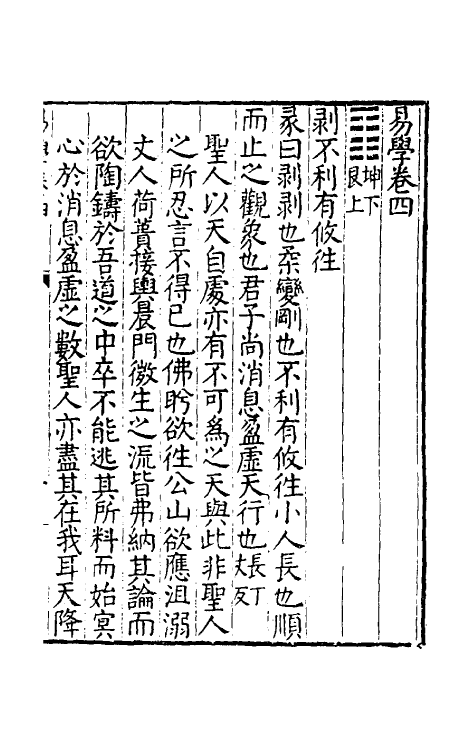 易學卷四
坤下
艮上
剥不利有攸往
彖曰剥剥也柔變剛也不利有攸往小人長也順
而止之觀象也君子尚消息盈虛天行也長丁丈反
聖人以天自處亦有不可為之天與此非聖人
之所忍言不得已也佛肸欲往公山欲應沮溺
丈人荷蕢接輿晨門微生之流皆弗納其論而
欲陶鑄於吾道之中卒不能逃其所料而始㝠
心於消息盈虛之數聖人亦盡其在我耳天降